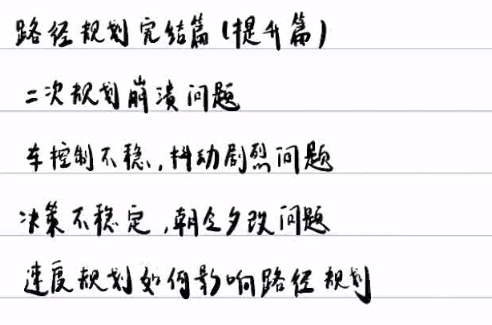 路径规划完结篇(提升篇)
二次规划崩溃问题
车控制不稳,抖动剧烈问题
决策不稳定,朝令夕改问题
速度规划如何影响路径规划